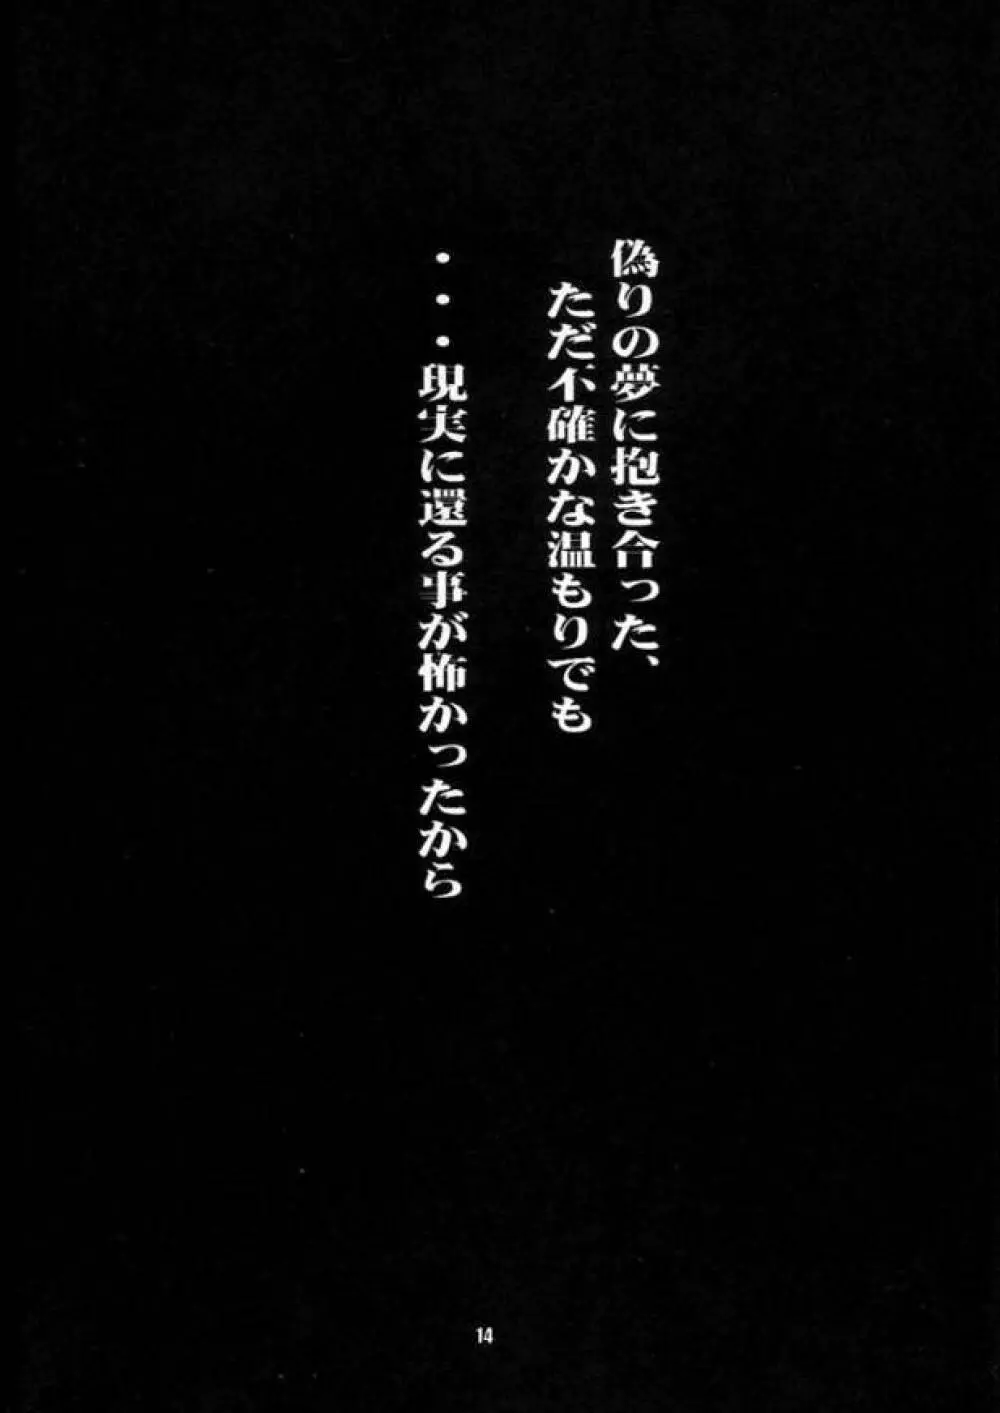 偽りの夢に抱き合った、
ただ不確かな温もりでも
・・・現実に還る事が怖かったから
14